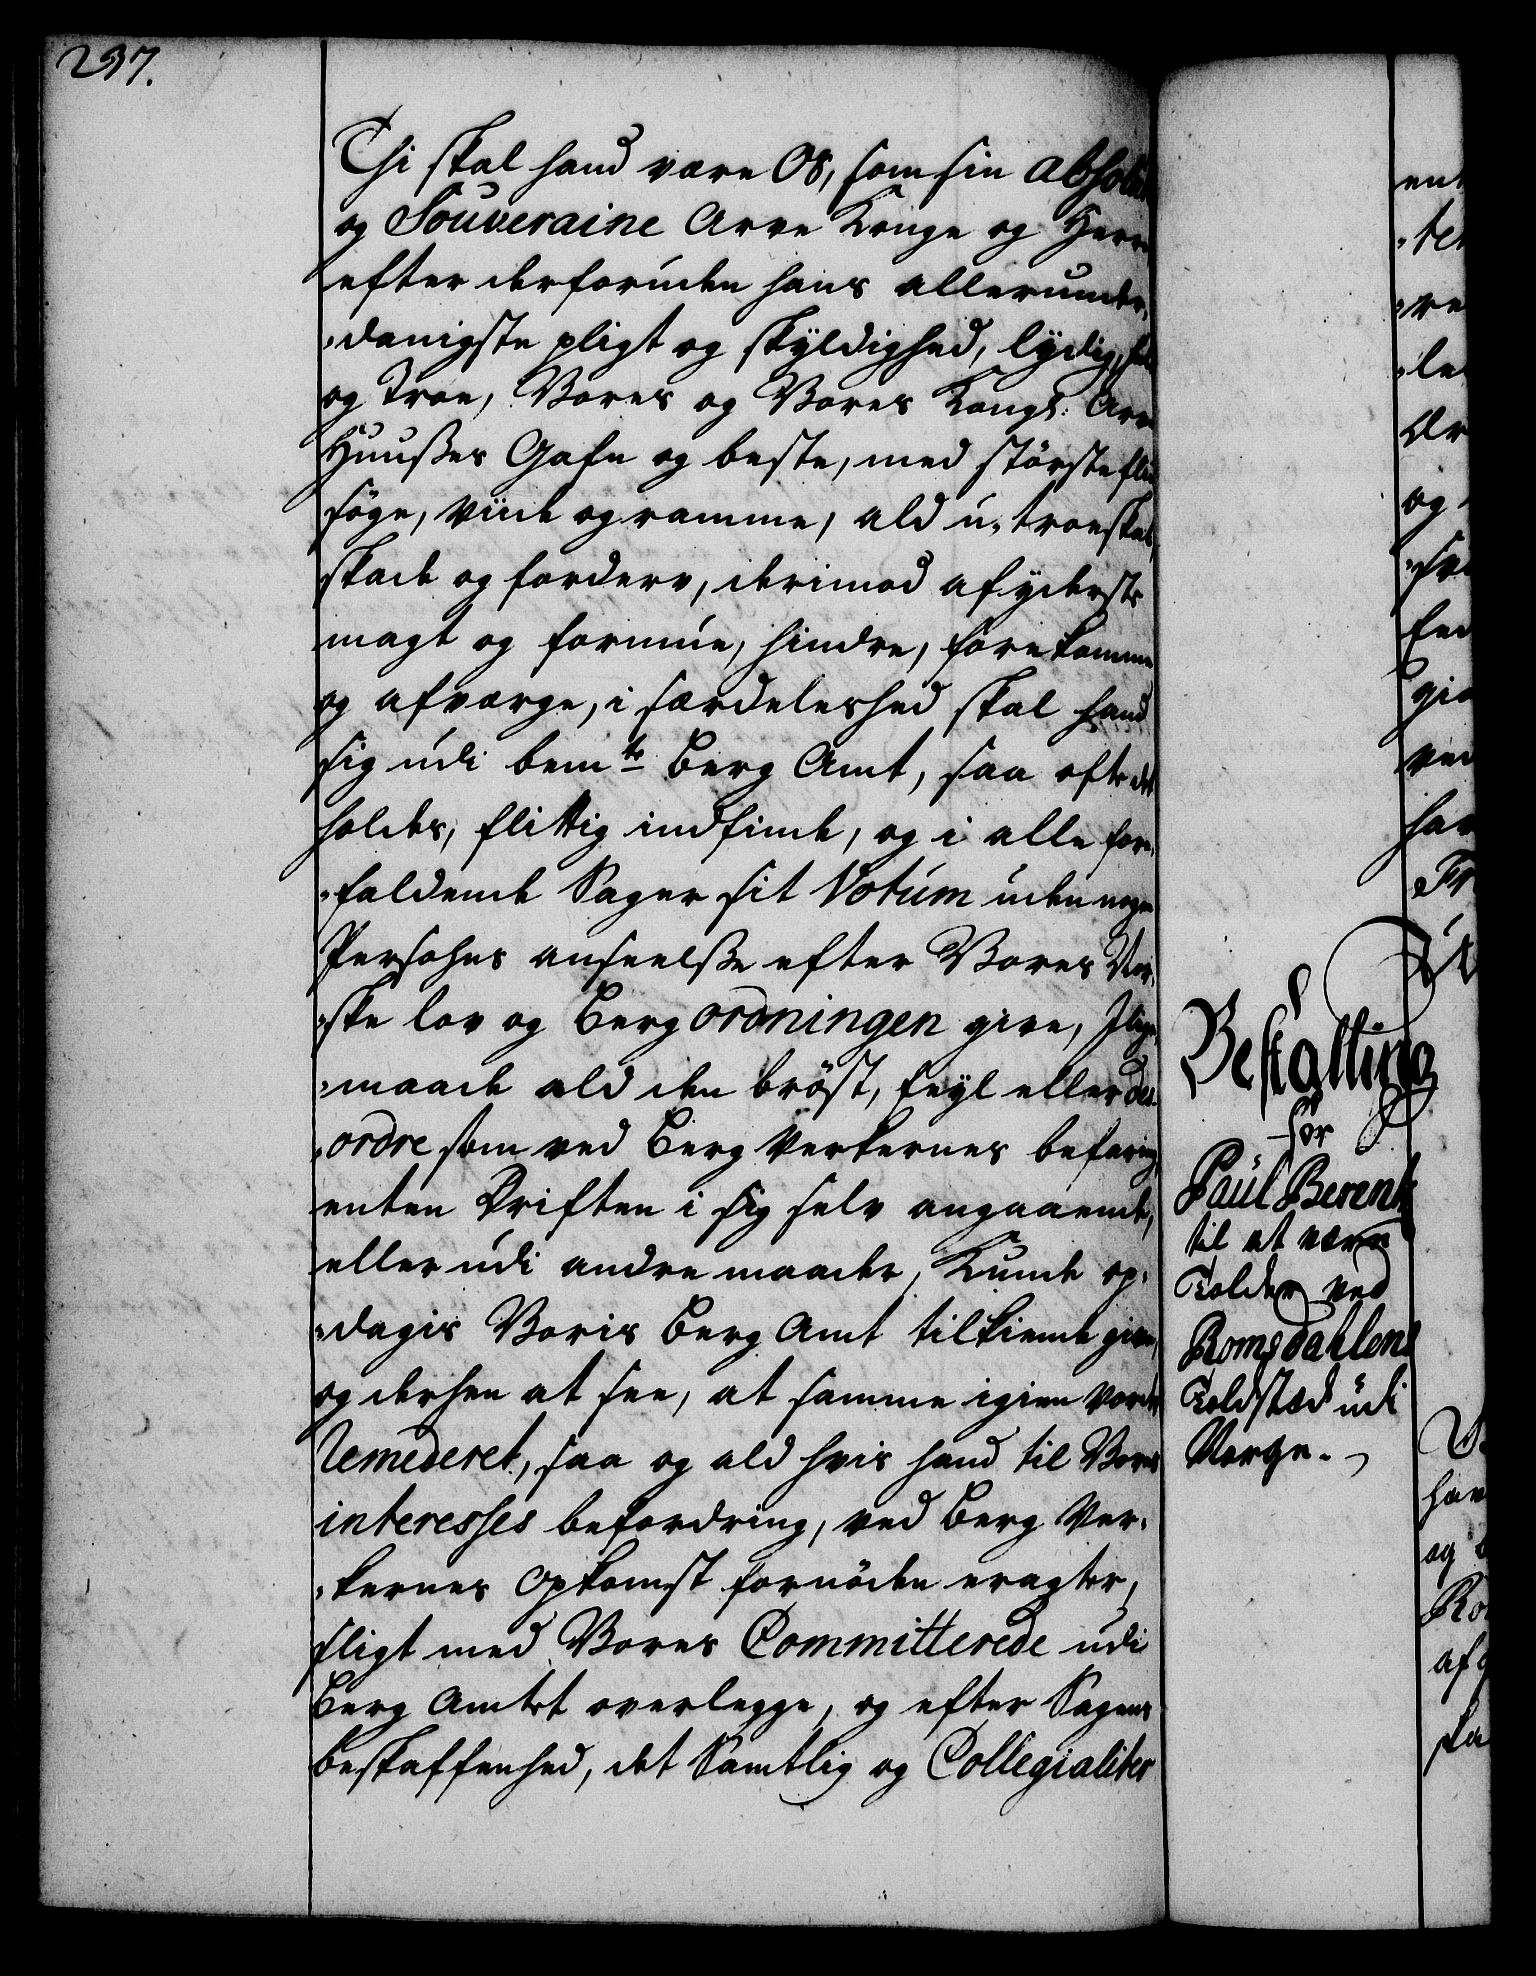 297.
Thi skal hand være Os, som sin absolut
og Souveraine Arve Konge og Herre
efter derforuden hans allerunder-
danigste pligt og skyldighed, lydig, huld
og troe, Vores og Vores Kongl: Arve
Huußes Gafn og beste, med störste fliid
söge, viide og ramme, ald u-troeskab,
skade og forderv, derimod af yderste
magt og formue, hindre, forekomme
og afværge, i særdeleshed skal hand
sig udi bemte Berg Amt, saa ofte det
holdes, flittig indfinde, og i alle fore-
faldende Sager sit Votum uden nogen
Persohns anseelße efter Vores Nor-
ske lov og Berg ordningen give, Ilige-
maade ald den bröst, feyl eller des-
ordre som ved Berg Verkernes befaring
enten Driften i sig selv angaaende,
eller udi andre maader, kunde op-
dagis Voris Berg Amt tilkiende give,
og derhen at see, at samme igien vorder
Remederet, saa og ald hvis hand til Vores
interesses befordring, ved Berg Ver-
kernes opkomst fornöden eragter,
sligt med Vores Committerede udi
Berg Amtet overlegge, og efter Sagens
beskaffenhed, det Samtlig og Collegialiter
Bestalling
for
Paul Berent
til at være
Tolder ved
Romsdahlens
Toldsted udi
Norge.